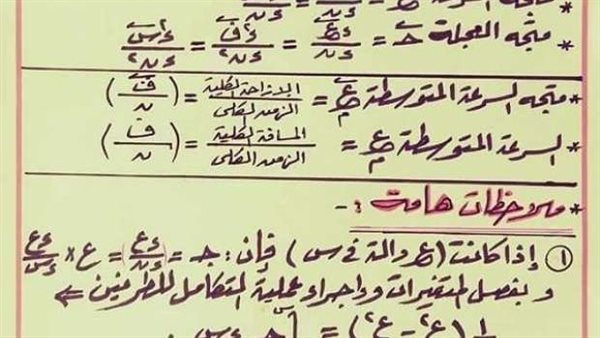 * متجه العجلة جـ = ءع/ءن = ء²ف/ءن² = ء²س/ءن²
* متجه السرعة المتوسطة ع م = الإزاحة الكلية/الزمن الكلى = (ف/ن)
* السرعة المتوسطة ع م = المسافة الكلية/الزمن الكلى = (ف/ن)
* ملاحظات هامة :-
① إذا كانت (ع دالة فى س) فإن: جـ = ءع/ءن = ع × ءع/ءس
وبفصل المتغيرات وإجراء عملية التكامل للطرفين ⇐